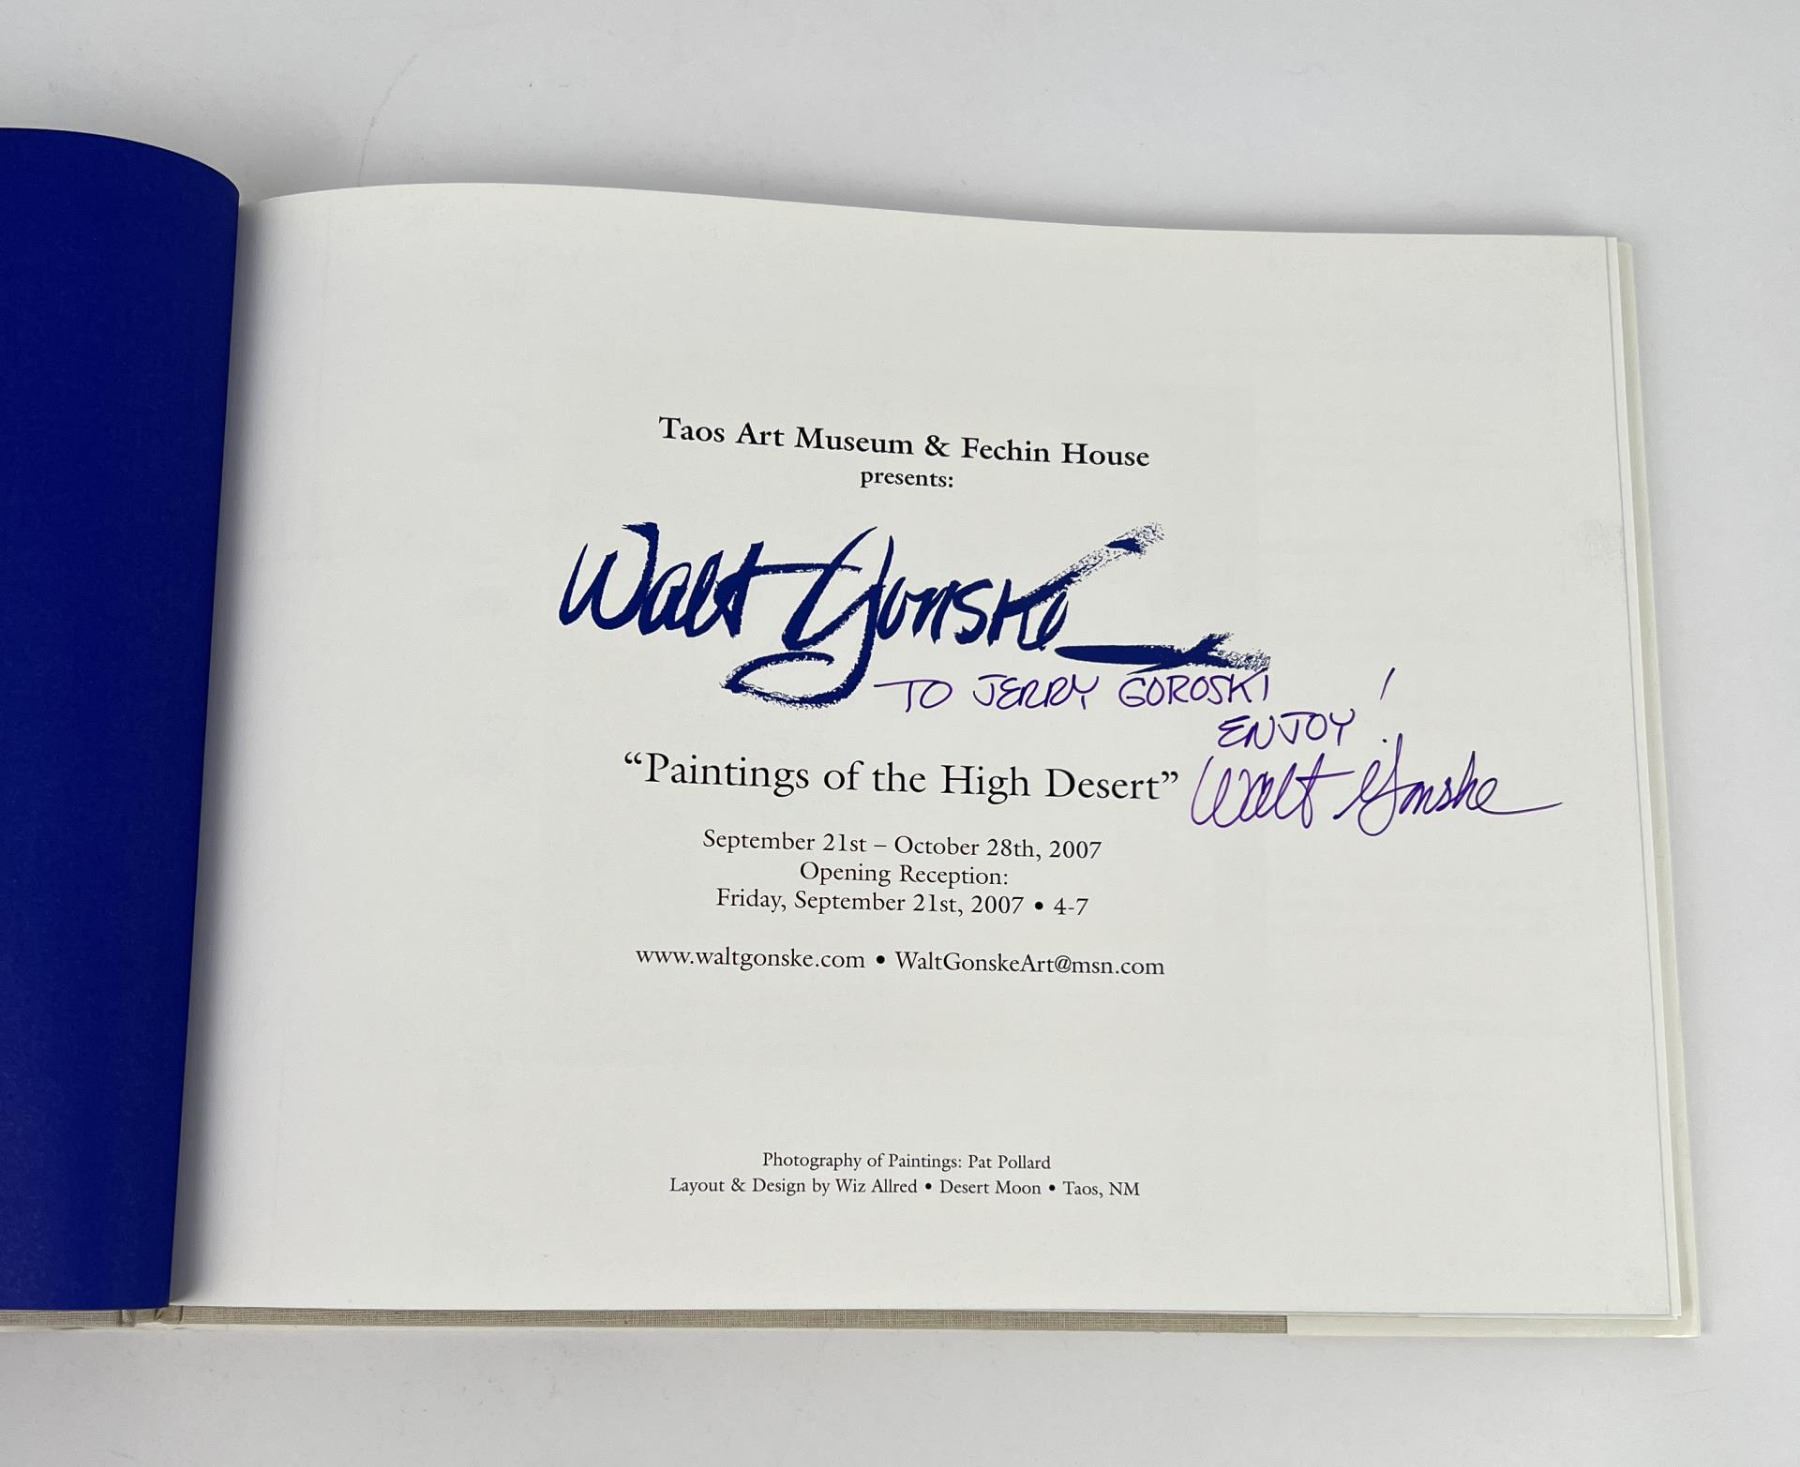 Taos Art Museum & Fechin House
presents:
Walt Gonske
TO JERRY GOROSKI
ENJOY!
Walt Gonske
“Paintings of the High Desert”
September 21st – October 28th, 2007
Opening Reception:
Friday, September 21st, 2007 • 4-7
www.waltgonske.com • WaltGonskeArt@msn.com
Photography of Paintings: Pat Pollard
Layout & Design by Wiz Allred • Desert Moon • Taos, NM